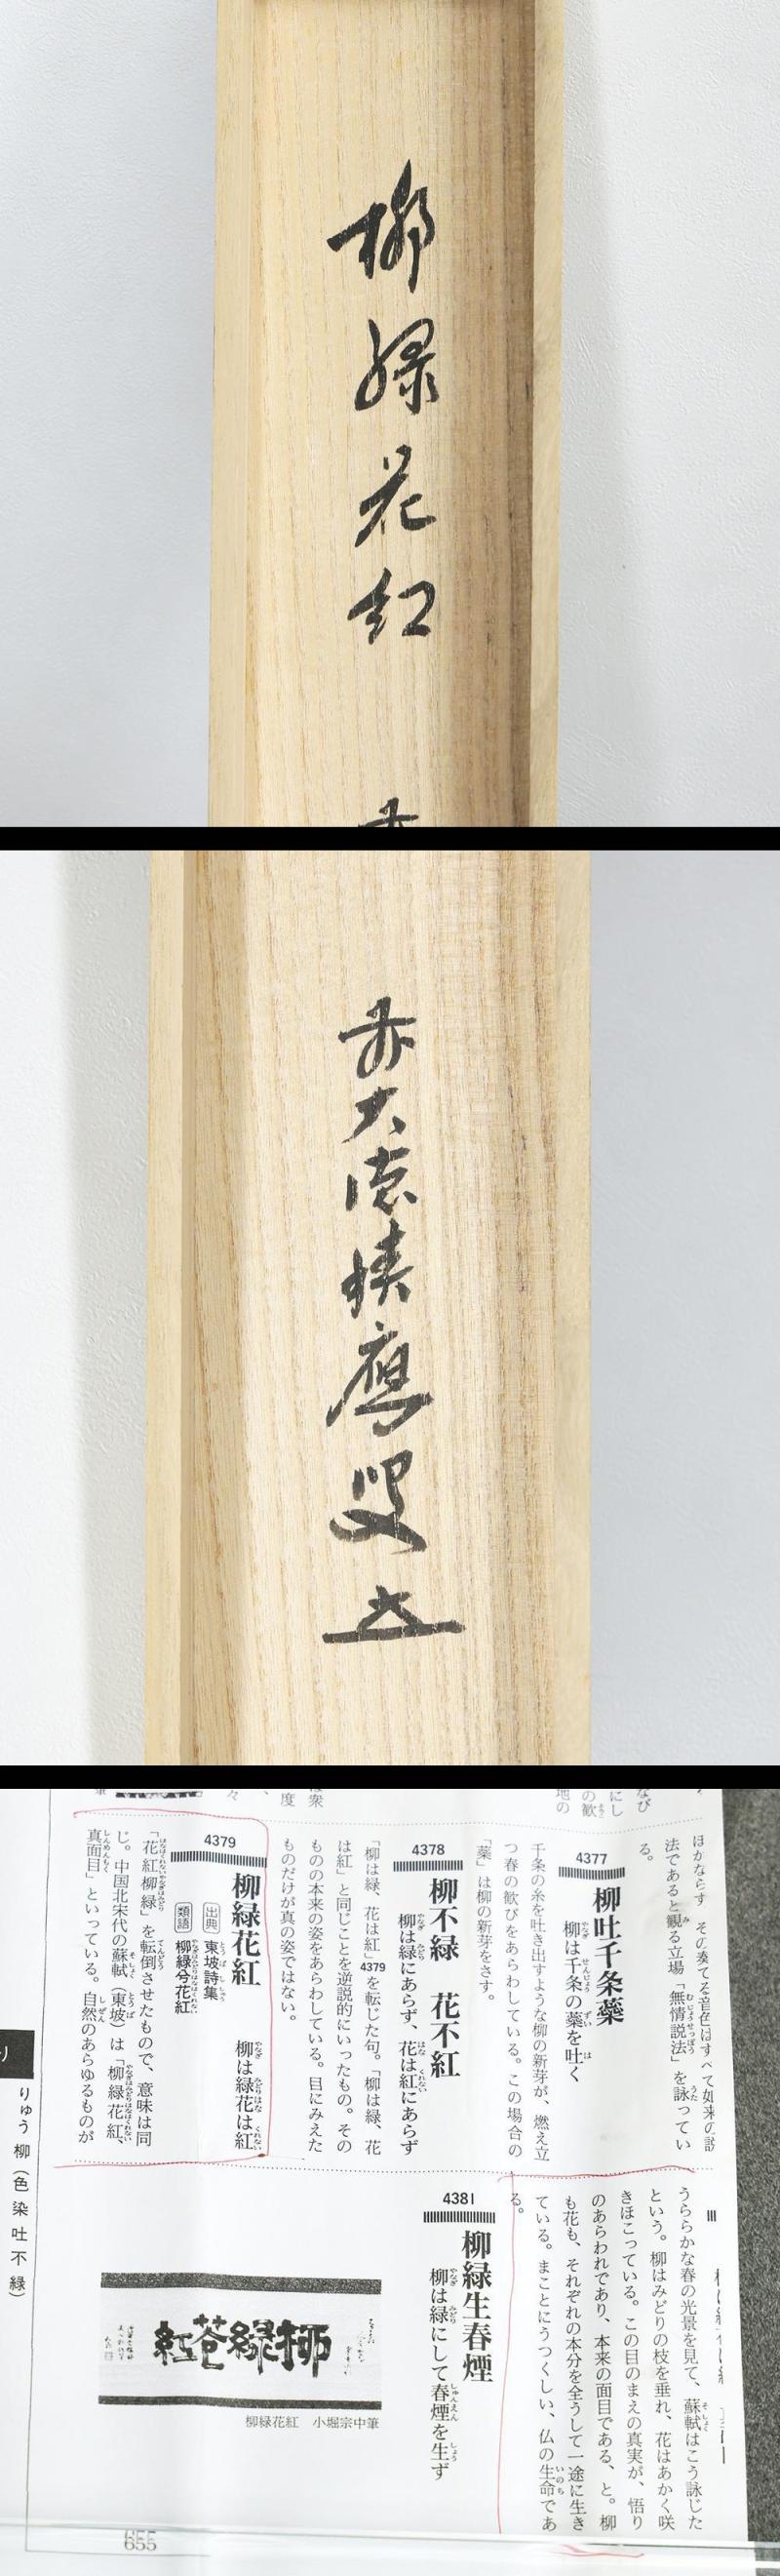 柳緑花紅
前大徳積應叟
4377
柳吐千条蘂
柳は千条の蘂を吐く
千条の糸を吐き出すような柳の新芽が、燃え立
つ春の歓びをあらわしている。この場合の
「蘂」は柳の新芽をさす。
4378
柳不緑 花不紅
柳は緑にあらず、花は紅にあらず
「柳は緑、花は紅」4379を転じた句。「柳は緑、花
は紅」と同じことを逆説的にいったもの。その
ものの本来の姿をあらわしている。目にみえた
ものだけが真の姿ではない。
4379
柳緑花紅 柳は緑花は紅
出典 東坡詩集
類語 柳緑兮花紅
「花紅柳緑」を転倒させたもので、意味は同
じ。中国北宋代の蘇軾（東坡）は「柳緑花紅、
真面目」といっている。自然のあらゆるものが
ほかならず、その奏でる音色はすべて如来の説
法であると観る立場「無情説法」を詠ってい
る。
うららかな春の光景を見て、蘇軾はこう詠じた
という。柳はみどりの枝を垂れ、花はあかく咲
きほこっている。この目のまえの真実が、悟り
のあらわれであり、本来の面目である、と。柳
も花も、それぞれの本分を全うして一途に生き
ている。まことにうつくしい、仏の生命であ
る。
4381
柳緑生春煙
柳は緑にして春煙を生ず
柳緑花紅
柳緑花紅 小堀宗中筆
りゅう 柳（色染吐不緑）
655